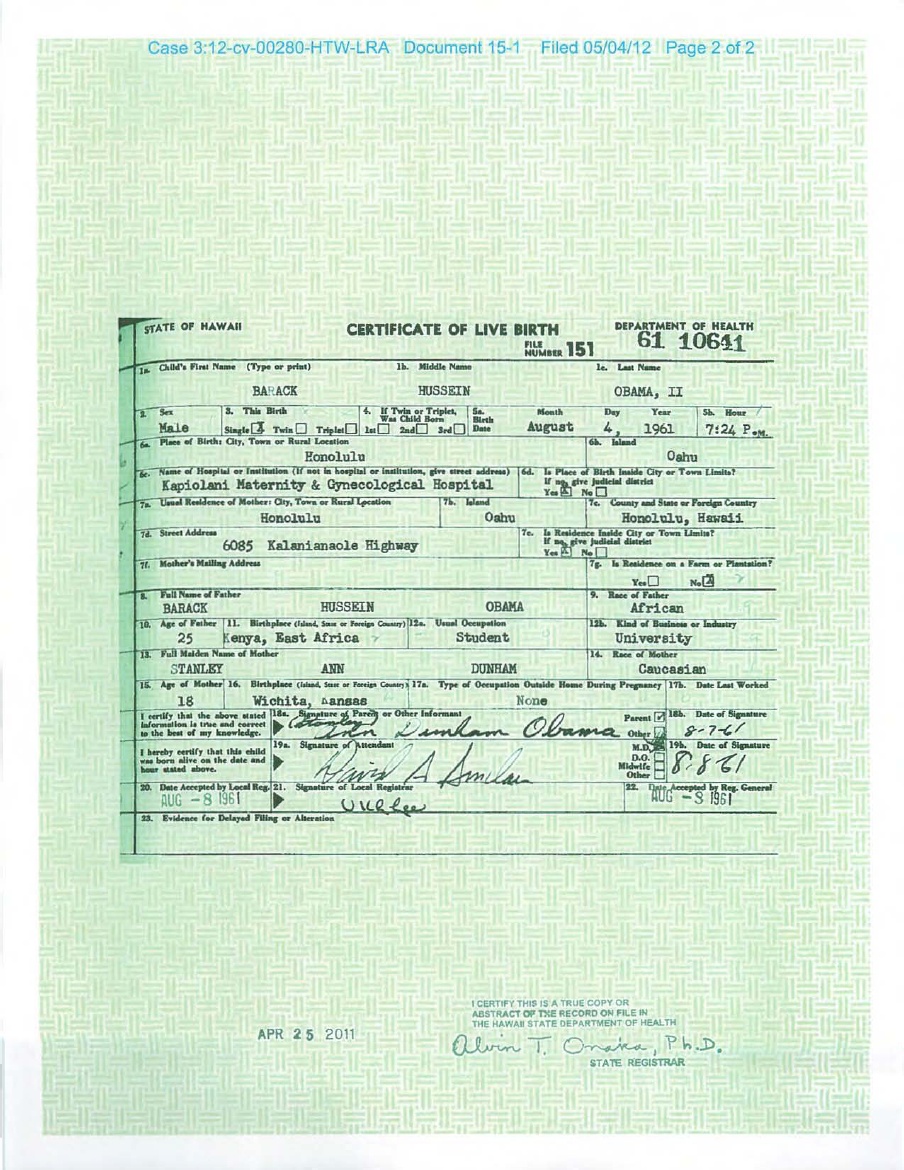 Case 3:12-cv-00280-HTW-LRA Document 15-1 Filed 05/04/12 Page 2 of 2
STATE OF HAWAII CERTIFICATE OF LIVE BIRTH DEPARTMENT OF HEALTH
FILE NUMBER 151 61 10641
1a. Child's First Name (Type or print) 1b. Middle Name 1c. Last Name
BARACK HUSSEIN OBAMA, II
2. Sex 3. This Birth 4. If Twin or Triplet, Was Child Born 5a. Birth Date Month Day Year 5b. Hour
Male Single X Twin Triplet 1st 2nd 3rd August 4, 1961 7:24 P.M.
6a. Place of Birth: City, Town or Rural Location 6b. Island
Honolulu Oahu
6c. Name of Hospital or Institution (If not in hospital or institution, give street address) 6d. Is Place of Birth Inside City or Town Limits?
If no, give judicial district
Kapiolani Maternity & Gynecological Hospital Yes X No
7a. Usual Residence of Mother: City, Town or Rural Location 7b. Island 7c. County and State or Foreign Country
Honolulu Oahu Honolulu, Hawaii
7d. Street Address 7e. Is Residence Inside City or Town Limits?
If no, give judicial district
6085 Kalanianaole Highway Yes X No
7f. Mother's Mailing Address 7g. Is Residence on a Farm or Plantation?
Yes No X
8. Full Name of Father 9. Race of Father
BARACK HUSSEIN OBAMA African
10. Age of Father 11. Birthplace (Island, State or Foreign Country) 12a. Usual Occupation 12b. Kind of Business or Industry
25 Kenya, East Africa Student University
13. Full Maiden Name of Mother 14. Race of Mother
STANLEY ANN DUNHAM Caucasian
15. Age of Mother 16. Birthplace (Island, State or Foreign Country) 17a. Type of Occupation Outside Home During Pregnancy 17b. Date Last Worked
18 Wichita, Kansas None
I certify that the above stated information is true and correct to the best of my knowledge. 18a. Signature of Parent or Other Informant Parent Other 18b. Date of Signature
(Stanley) Ann Dunham Obama 8-7-61
I hereby certify that this child was born alive on the date and hour stated above. 19a. Signature of Attendant M.D. D.O. Midwife Other 19b. Date of Signature
David A Sinclair 8-8-61
20. Date Accepted by Local Reg. 21. Signature of Local Registrar 22. Date Accepted by Reg. General
AUG -8 1961 U K L Lee AUG -8 1961
23. Evidence for Delayed Filing or Alteration
APR 25 2011
I CERTIFY THIS IS A TRUE COPY OR
ABSTRACT OF THE RECORD ON FILE IN
THE HAWAII STATE DEPARTMENT OF HEALTH
Alvin T. Onaka, Ph.D.
STATE REGISTRAR